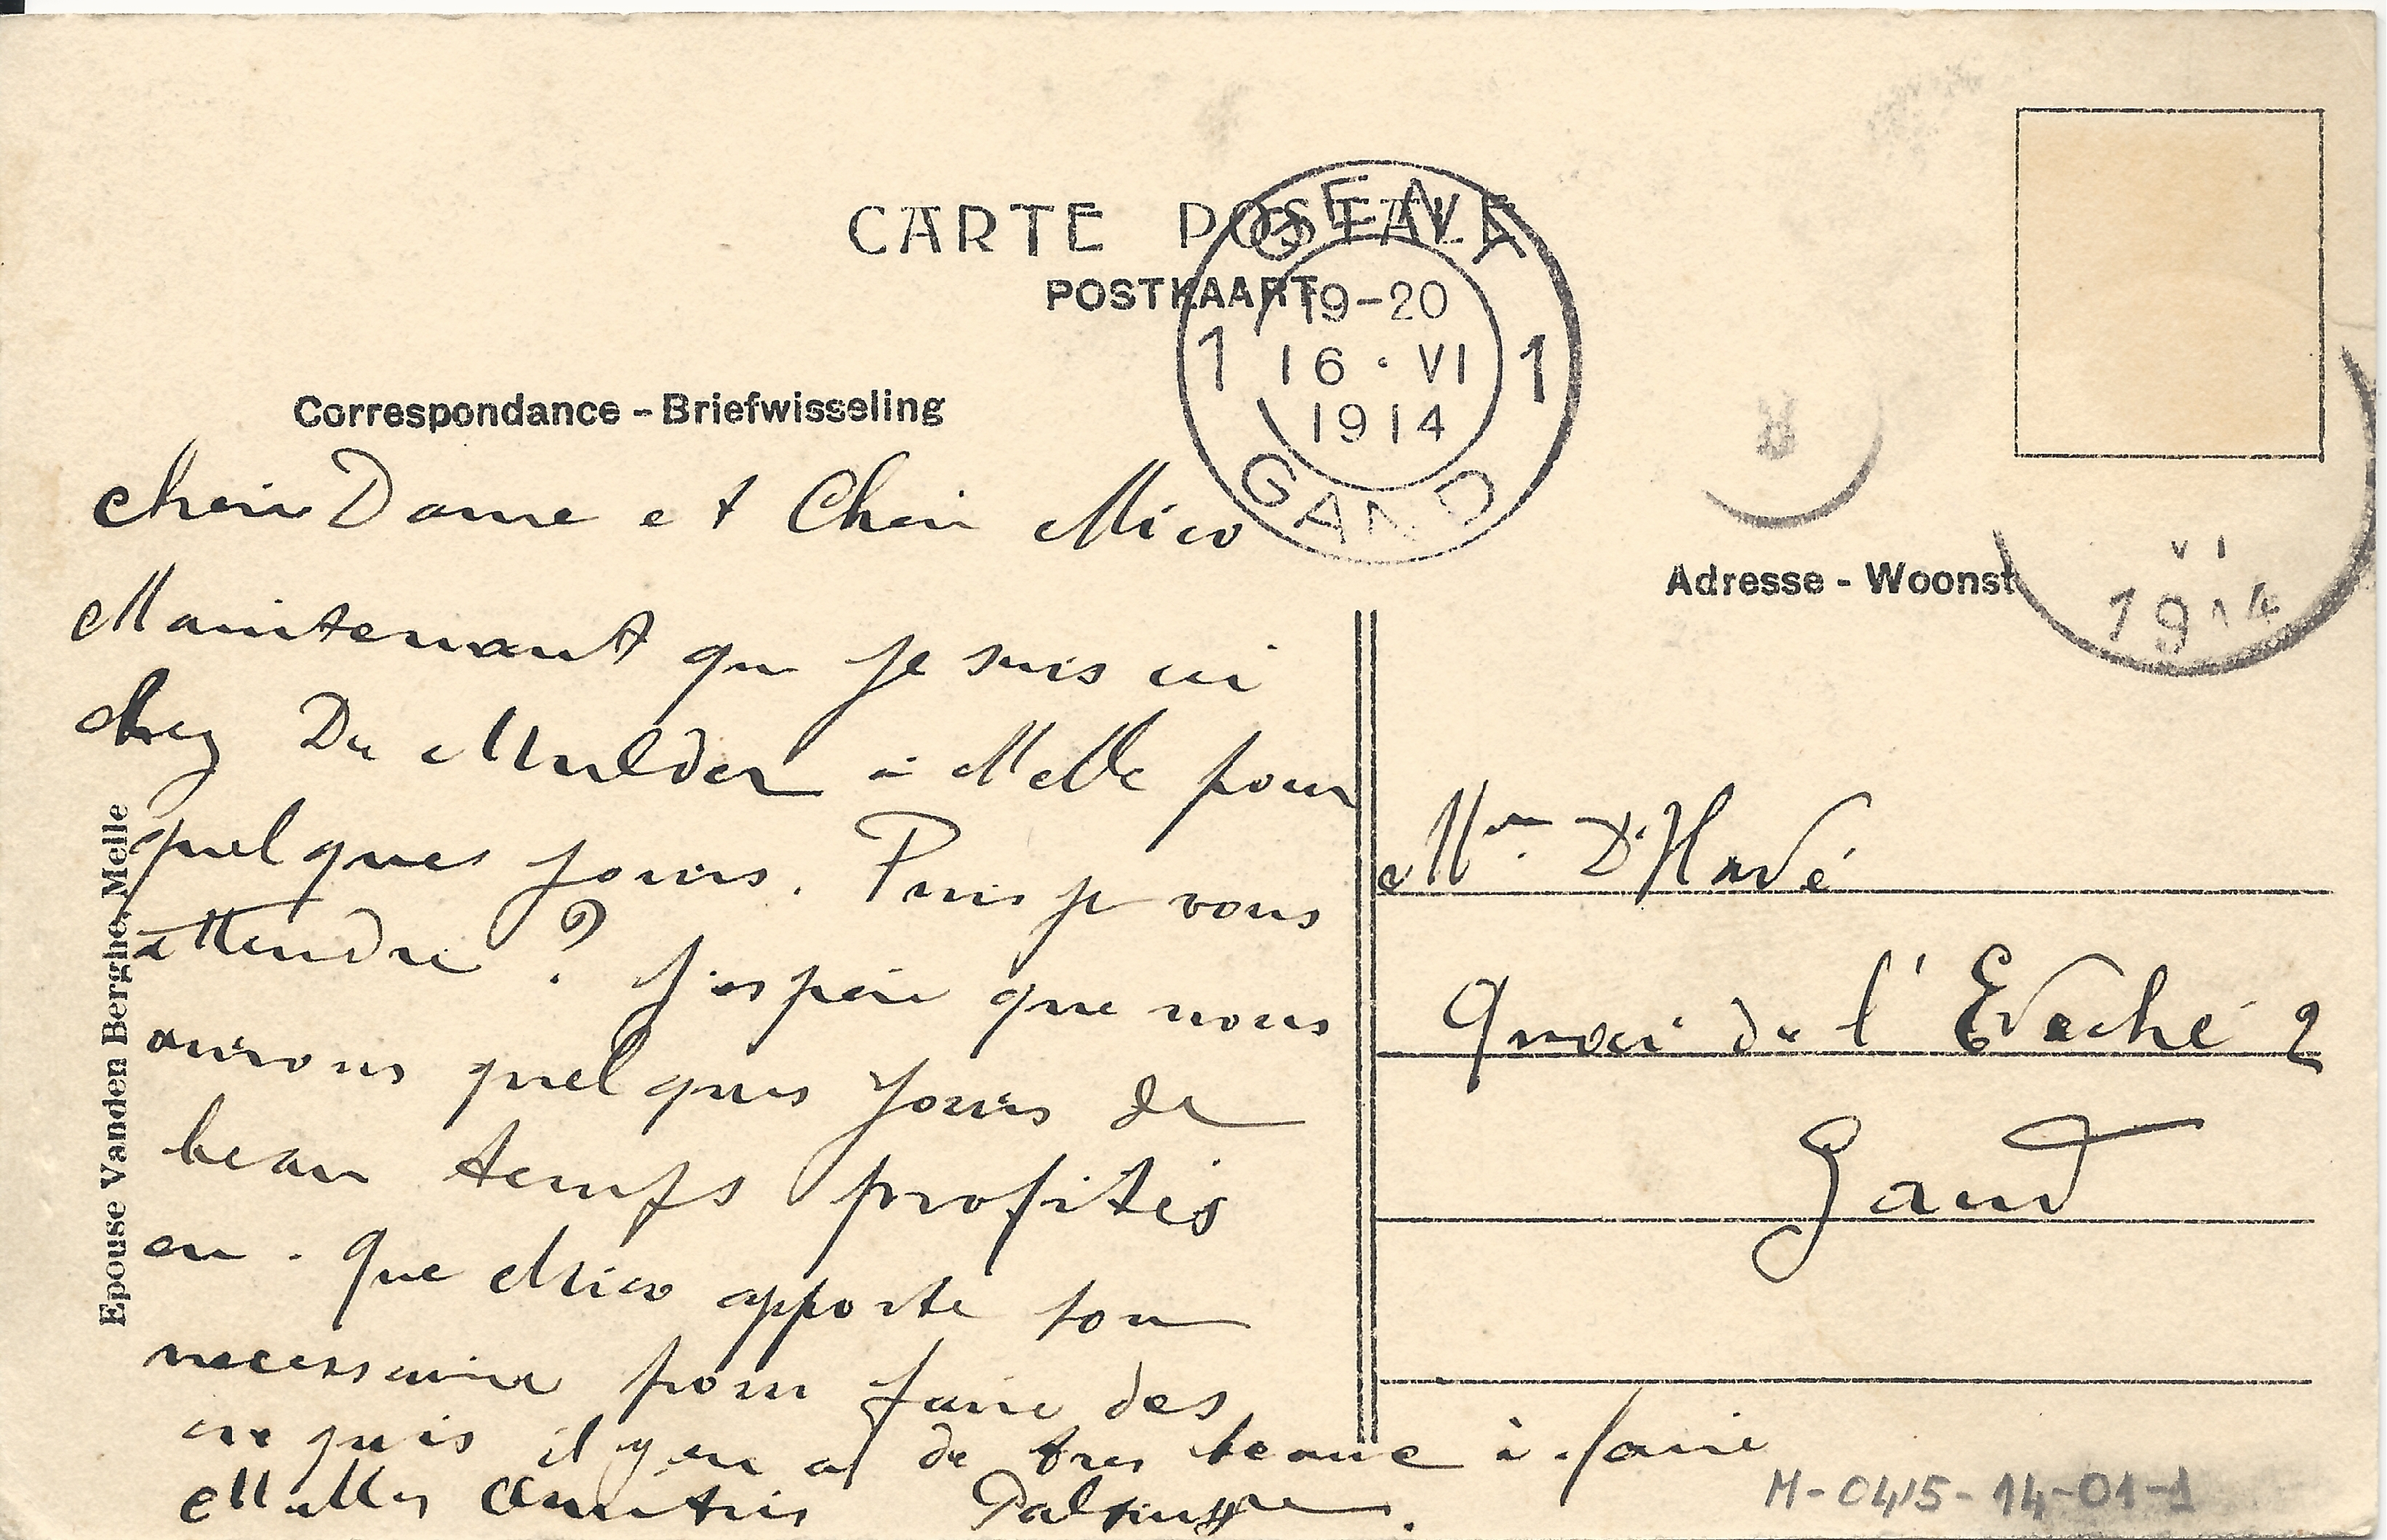 CARTE POSTALE
POSTKAART
GENT
19-20
1 16·VI 1
1914
GAND
VI
1914
Correspondance - Briefwisseling
Adresse - Woonst
Epouse Vanden Berghe, Melle
Chère Dame et Cher Mico
Maintenant que je suis ici
chez De Mulder à Melle pour
quelques jours. Puis je vous
attendre ? J'espère que nous
aurons quelques jours de
beau temps profités
en. Que Mico apporte son
necessaire pour faire des
croquis il y en a de tres beaux à faire
Milles Amitiés
Mme D'Havé
Quai de l'Evêché 2
Gand
M-0415-14-01-1